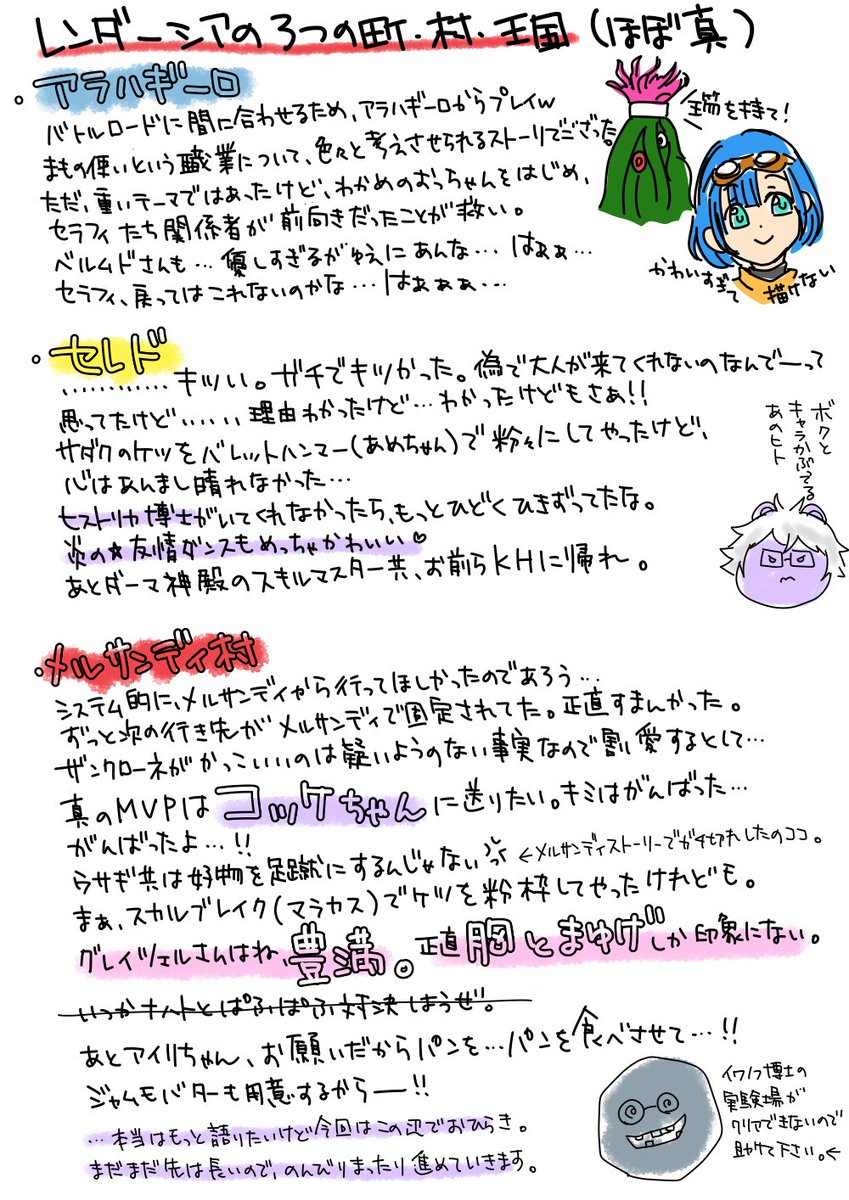 レンダーシアの3つの町・村・王国(ほぼ真)
・アラハギーロ
バトルロードに間に合わせるため、アラハギーロからプレイw
まもの使いという職業について、色々と考えさせられるストーリでござった。
ただ、重いテーマではあったけど、わかめのおっちゃんをはじめ、
セラフィたち関係者が前向きだったことが救い。
ベルムドさんも…優しすぎるがゆえにあんな…はぁぁ…
セラフィ、戻ってはこれないのかな…はぁぁぁ…
玉筋を持て!
かわいすぎて
描けない
・セレド
…………キツい。ガチでキツかった。偽で大人が来てくれないのなんでーって
思ってたけど……理由わかったけど…わかったけどもさあ!!
サダクのケツをバレットハンマー(あめちゃん)で粉々にしてやったけど、
心はあんまし晴れなかった…
ヒストリカ博士がいてくれなかったら、もっとひどくひきずってたな。
炎の★友情ダンスもめっちゃかわいい♡
あとダーマ神殿のスキルマスター共、お前らKHに帰れ。
ボクと
キャラかぶってる
あのヒト
・メルサンディ村
システム的に、メルサンディから行ってほしかったのであろう…
ずっと次の行き先がメルサンディで固定されてた。正直すまんかった。
ザンクローネがかっこいいのは疑いようのない事実なので割愛するとして…
真のMVPはコッケちゃんに送りたい。キミはがんばった…
がんばったよ…!!
うサギ共は好物を足蹴にするんじゃない ←メルサンディストーリーでガチ切れしたのココ。
まぁ、スカルブレイク(マラカス)でケツを粉枠してやったけれども。
グレイツェルさんはね、豊満。正直胸とまゆげしか印象にない。
いつかキハトとぱふぱふ対決しようぜ。
あとアイリちゃん、お願いだからパンを…パンを食べさせて…!!
ジャムもバターも用意するからー!!
…本当はもっと語りたいけど今回はこの辺でおひらき。
まだまだ先は長いので、のんびりまったり進めていきます。
イワノフ博士の
実験場が
クリアできないので
助けて下さい。←